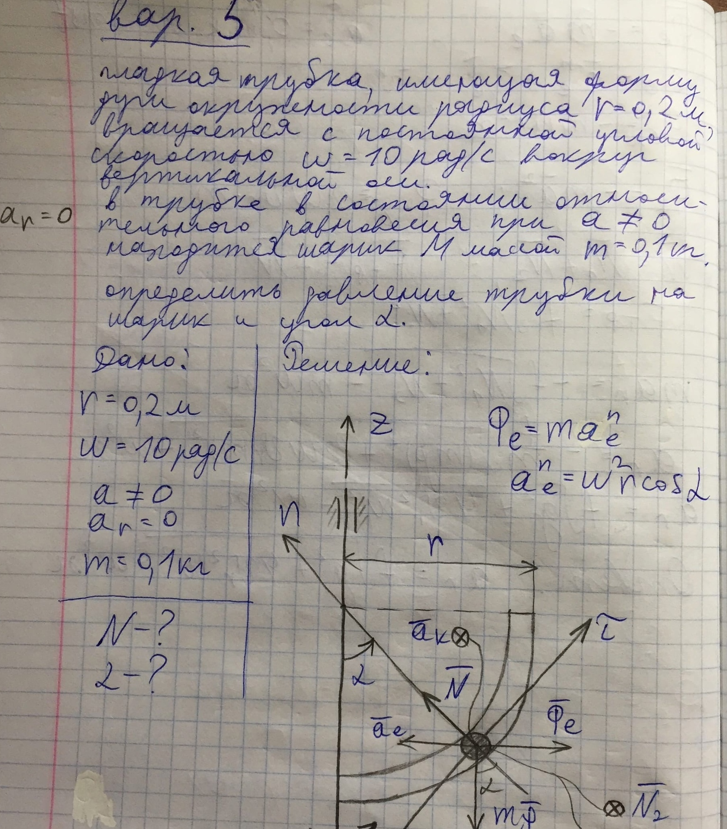 вар. 5
гладкая трубка, имеющая форму
дуги окружности радиуса r=0,2 м,
вращается с постоянной угловой
скоростью ω=10 рад/с вокруг
вертикальной оси.
в трубке в состоянии относи-
тельного равновесия при a≠0
находится шарик М массой m=0,1 кг.
a_r=0
определить давление трубки на
шарик и угол α.
Дано:
r=0,2 м
ω=10 рад/с
a≠0
a_r=0
m=0,1 кг
N-?
α-?
Решение:
Φe=ma_e^n
a_e^n=ω²r cosα
z
n
r
ā_k
τ̄
α
N̄
ā_e
Φ̄e
α
N̄₂